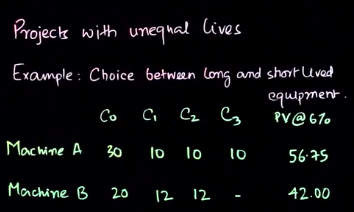 Projects with unequal lives
Example: Choice between long and short lived equipment.
C0 C1 C2 C3 PV@6%
Machine A 30 10 10 10 56.75
Machine B 20 12 12 - 42.00